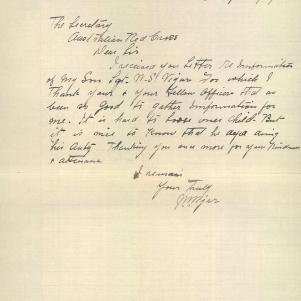 The Secretary
Australian Red Cross
Dear Sir
I received you Letter Re Imformation
of My Son Sgt. N. S. Vigar For which I
Thank your & your Fellow Officers that as
been so Good to Gather Imformation for
me. It is hard to loose ones Child. But
it is nice to Know that he dyed doing
his duty Thanking you once more for your Kindness
&
I remain
Your Truly